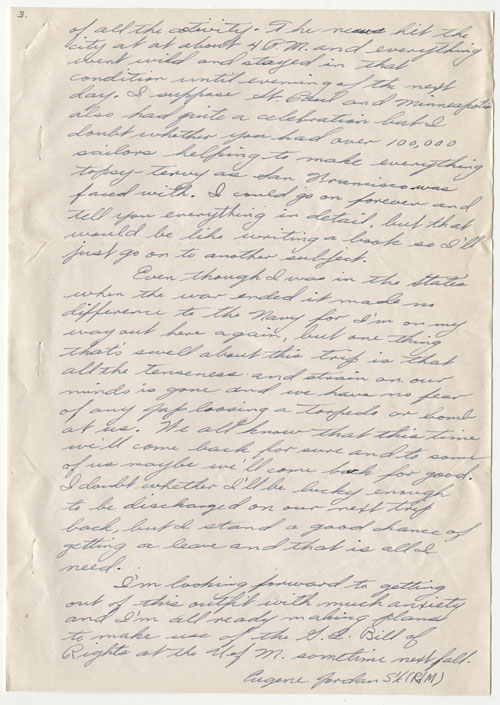 3.
of all the activity. The news hit the
city at at about 4 P.M. and everything
went wild and stayed in that
condition until evening of the next
day. I suppose St. Paul and Minneapolis
also had quite a celebration but I
doubt whether you had over 100,000
sailors helping to make everything
topsy-tervy as San Francisco was
faced with. I could go on forever and
tell you everything in detail, but that
would be like writing a book so I'll
just go on to another subject.
Even though I was in the States
when the war ended it made no
difference to the Navy for I'm on my
way out here again, but one thing
that's swell about this trip is that
all the tenseness and strain on our
minds is gone and we have no fear
of any Jap loosing a torpedo or bomb
at us. We all know that this time
we'll come back for sure and to some
of us maybe we'll come back for good.
I doubt whether I'll be lucky enough
to be discharged on our next trip
back but I stand a good chance of
getting a leave and that is all I
need.
I'm looking forward to getting
out of this outfit with much anxiety
and I'm all ready making plans
to make use of the G.I. Bill of
Rights at the U of M. sometime next fall.
Eugene Jordan S1/c (RM)